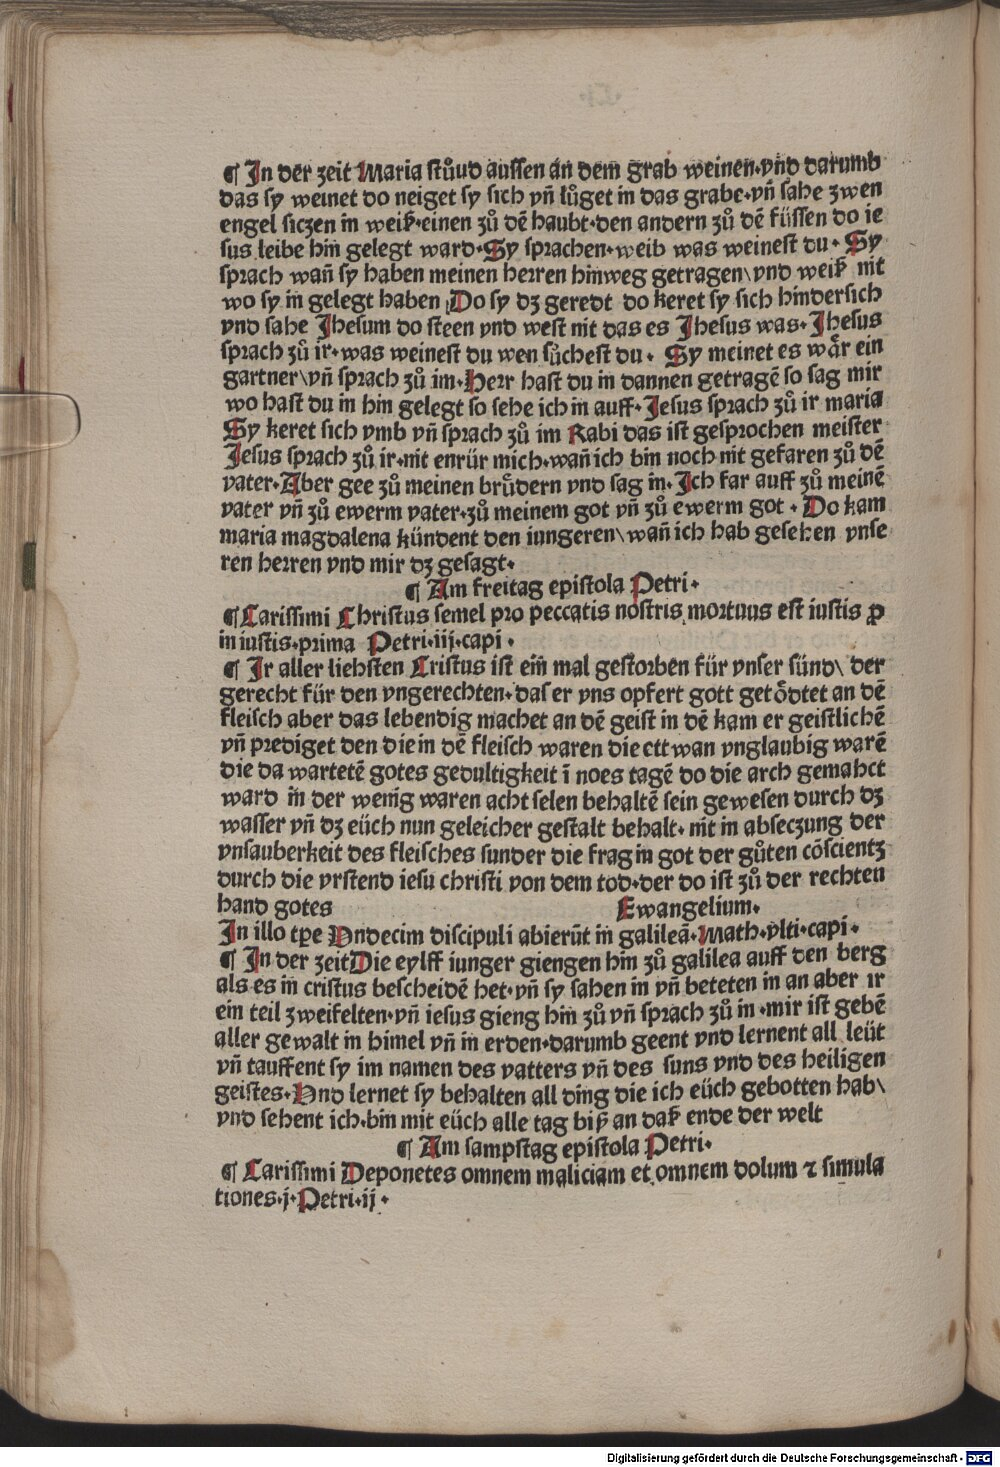 ¶ In der zeit Maria stůnd aussen an dem grab weinen·vnd darumb
das sy weinet do neiget sy sich vñ lůget in das grabe·vñ sahe zwen
engel siczen in weiß·einen zů dē haubt·den andern zů dē füssen do ie
sus leibe hin gelegt ward·Sy sprachen·weib was weinest du· Sy
sprach wañ sy haben meinen herren hinweg getragen\vnd weiß nit
wo sy in gelegt haben Do sy dz geredt do keret sy sich hindersich
vnd sahe Jhesum do steen vnd west nit das es Jhesus was·Jhesus
sprach zů ir·was weinest du wen sůchest du· Sy meinet es wår ein
gartner\vñ sprach zů im·Herr hast du in dannen getragē so sag mir
wo hast du in hin gelegt so sehe ich in auff·Jesus sprach zů ir maria
Sy keret sich vmb vñ sprach zů im Rabi das ist gesprochen meister
Jesus sprach zů ir·nit enrür mich·wañ ich bin noch nit gefaren zů dē
vater·Aber gee zů meinen brůdern vnd sag in·Ich far auff zů meinē
vater vñ zů ewerm vater·zů meinem got vñ zů ewerm got·Do kam
maria magdalena kündent den iungeren\wañ ich hab gesehen vnse
ren herren vnd mir dz gesagt·
¶ Am freitag epistola Petri·
¶ Carissimi Christus semel pro peccatis nostris mortuus est iustis ꝓ
in iustis·prima Petri·iij·capi·
¶ Ir aller liebsten Cristus ist ein mal gestorben für vnser sünd\ der
gerecht für den vngerechten·das er vns opfert gott getödtet an dē
fleisch aber das lebendig machet an dē geist in dē kam er geistlichē
vñ prediget den die in dē fleisch waren die ettwan vnglaubig warē
die da wartetē gotes gedultigkeit ī noes tagē do die arch gemahct
ward in der wenig waren acht selen behaltē sein gewesen durch dz
wasser vñ dz eüch nun geleicher gestalt behalt·nit in abseczung der
vnsauberkeit des fleisches sunder die frag in got der gůten cōscientz
durch die vrstend iesu christi von dem tod·der do ist zů der rechten
hand gotes Ewangelium·
In illo tꝑe Vndecim discipuli abierūt in galileā·Math·vlti·capi·
¶ In der zeit Die eylff iunger giengen hin zů galilea auff den berg
als es in cristus bescheidē het·vñ sy sahen in vñ beteten in an aber ir
ein teil zweifelten·vñ iesus gieng hin zů vñ sprach zů in·mir ist gebē
aller gewalt in himel vñ in erden·darumb geent vnd lernent all leüt
vñ tauffent sy im namen des vatters vñ des suns vnd des heiligen
geistes·Vnd lernet sy behalten all ding die ich eüch gebotten hab\
vnd sehent ich·bin mit eüch alle tag biß an daß ende der welt
¶ Am sampstag epistola Petri·
¶ Carissimi Deponetes omnem maliciam et omnem dolum ⁊ simula
tiones·j·Petri·ij·
Digitalisierung gefördert durch die Deutsche Forschungsgemeinschaft - DFG